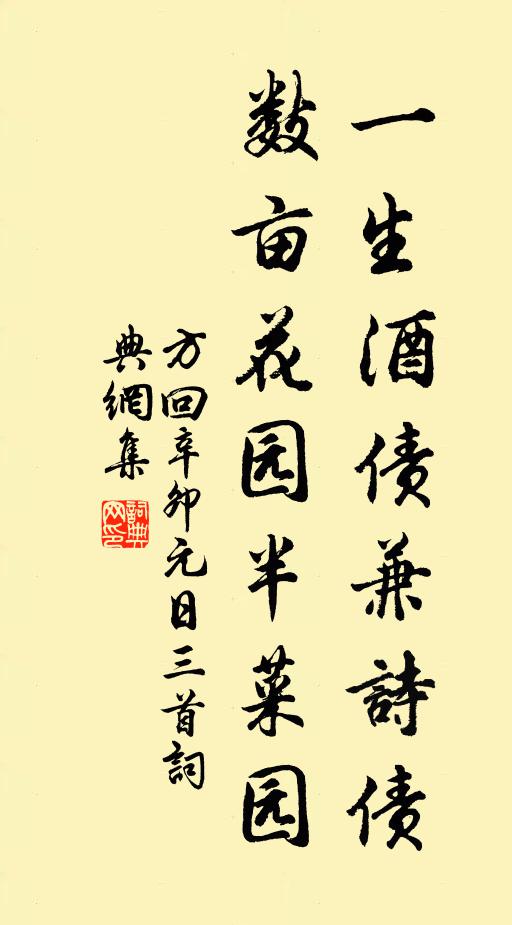 一生酒债兼詩债
数亩花园半菜园
方回辛卯元日三首詞
典網集
詞典网印